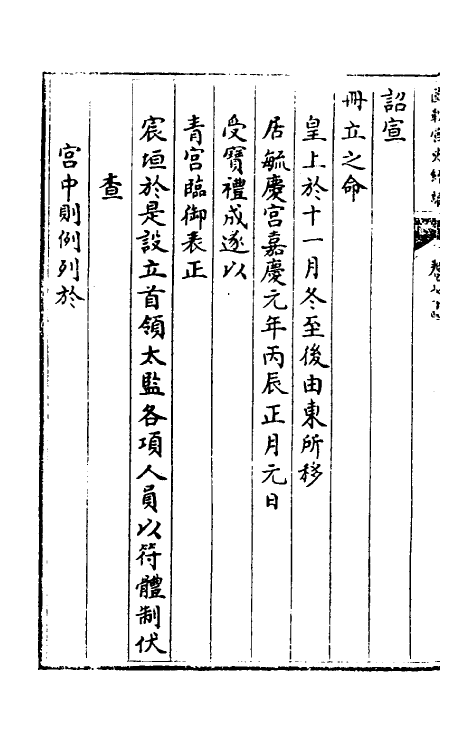 詔宣
冊立之命
皇上於十一月冬至後由東所移
居毓慶宮嘉慶元年丙辰正月元日
受寶禮成遂以
青宮臨御表正
宸垣於是設立首領太監各項人員以符體制伏
查
宮中則例列於